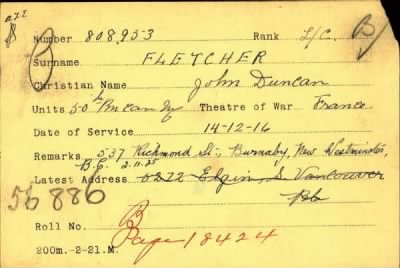 Number 808953 Rank L/C. B
Surname FLETCHER
Christian Name John Duncan
Units 50th Bn Can Inf Theatre of War France
Date of Service 14-12-16
Remarks 537 Richmond St., Burnaby, New Westminster,
B.C. 2.11.25
Latest Address 6272 Elgin S. Vancouver
56886
Roll No. B
Page 18424
200m.-2-21.M.